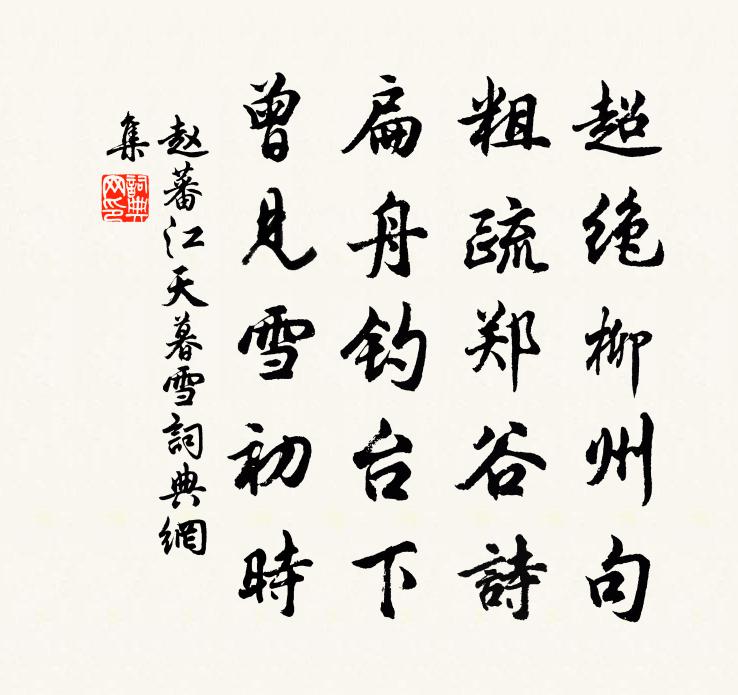 超绝柳州句
粗疏郑谷詩
扁舟钓台下
曾见雪初時
赵蕃江天暮雪詞典網
集
詞典网印